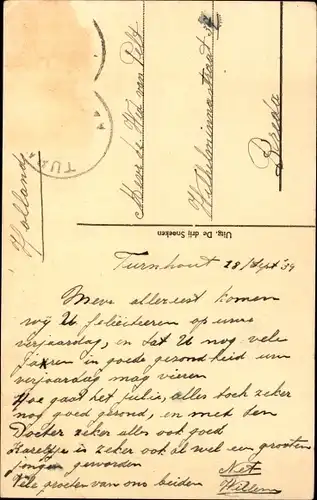 Turnhout 18/Sept '39
Meve allereest komen
wij U feliciteeren op uwe
verjaardag, en dat U nog vele
jaren in goede gezondheid uw
verjaardag mag vieren
Hoe gaat het jullie, alles toch zeker
nog goed gesond, en met den
Docter zeker alles ook goed
Kareltje is zeker ook al wel een grooten
jongen geworden
Vele groeten van ons beiden
Net
Willem
Uitg. De drij Snoeken
Mevr de Wed van Pelt
Wilhelminastraat
Breda
Holland
TU